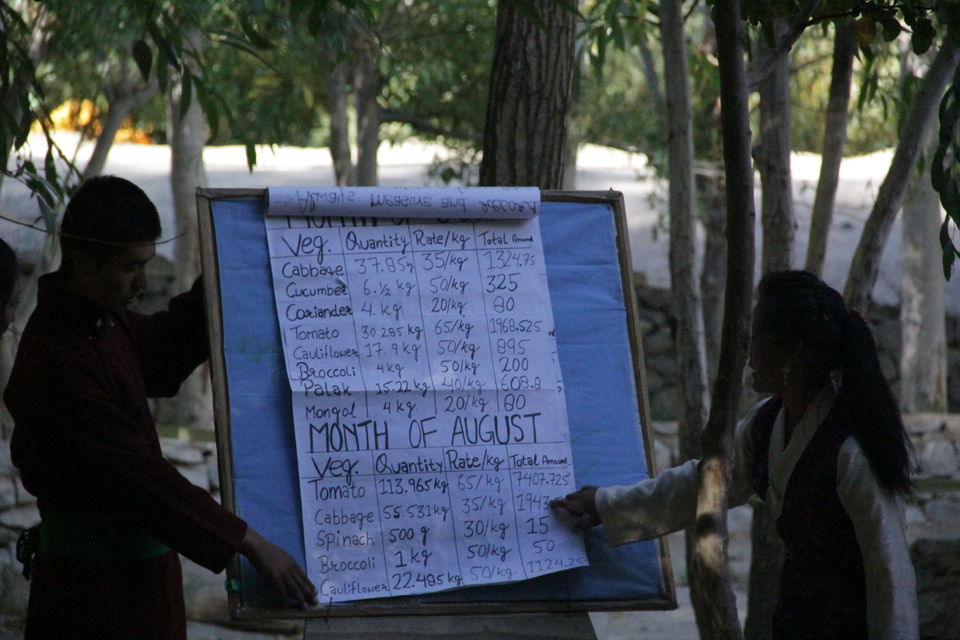 Measure and
MONTH OF
Veg. Quantity Rate/kg Total Amount
Cabbage 37.85kg 35/kg 1324.75
Cucumber 6.½ kg 50/kg 325
Coriander 4.kg 20/kg 80
Tomato 30.285kg 65/kg 1968.525
Cauliflower 17.9kg 50/kg 895
Broccoli 4kg 50/kg 200
Palak 15.22kg 40/kg 608.8
Mongol 4kg 20/kg 80
MONTH OF AUGUST
Veg. Quantity Rate/kg Total Amount
Tomato 113.965kg 65/kg 7407.725
Cabbage 55.531kg 35/kg 1943
Spinach 500 g 30/kg 15
Broccoli 1kg 50/kg 50
Cauliflower 22.485kg 50/kg 1124.25